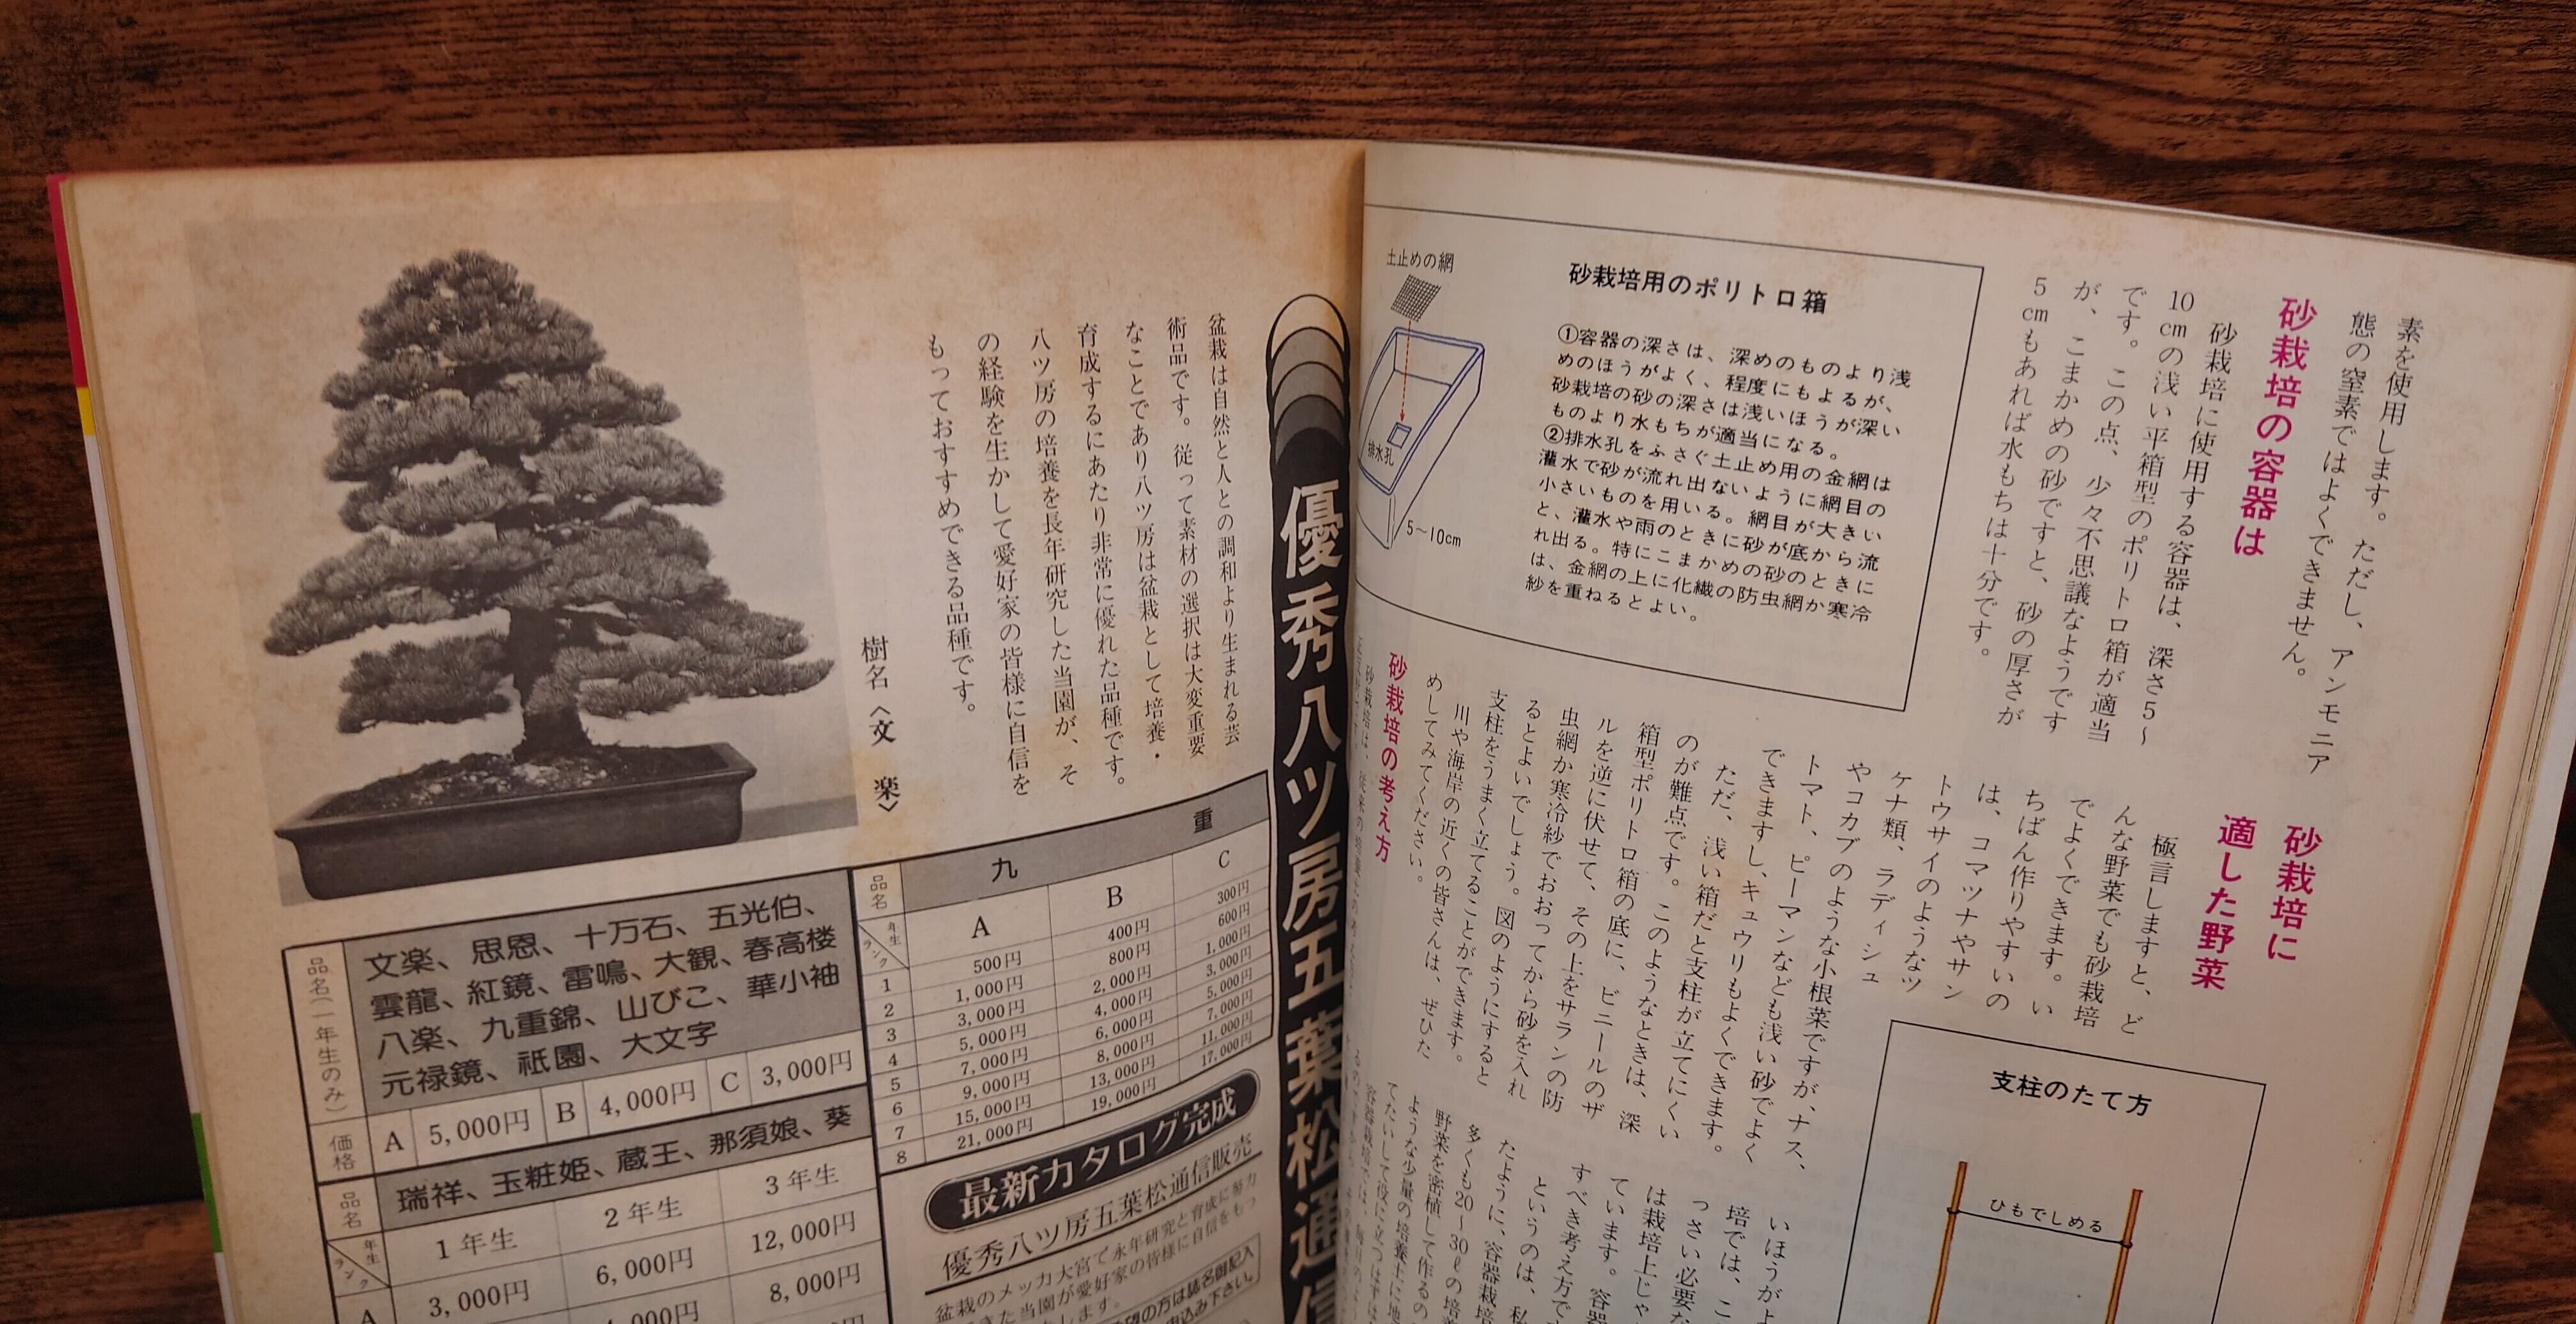 素を使用します。ただし、アンモニア
態の窒素ではよくできません。
砂栽培の容器は
砂栽培に使用する容器は、深さ5〜
10cmの浅い平箱型のポリトロ箱が適当
です。この点、少々不思議なようです
が、こまかめの砂ですと、砂の厚さが
5cmもあれば水もちは十分です。
砂栽培用のポリトロ箱
①容器の深さは、深めのものより浅
めのほうがよく、程度にもよるが、
砂栽培の砂の深さは浅いほうが深い
ものより水もちが適当になる。
②排水孔をふさぐ土止め用の金網は
灌水で砂が流れ出ないように網目の
小さいものを用いる。網目が大きい
と、灌水や雨のときに砂が底から流
れ出る。特にこまかめの砂のときに
は、金網の上に化繊の防虫網か寒冷
紗を重ねるとよい。
土止めの網
排水孔
5〜10cm
砂栽培に
適した野菜
極言しますと、ど
んな野菜でも砂栽培
でよくできます。い
ちばん作りやすいの
は、コマツナやサン
トウサイのようなツ
ケナ類、ラディシュ
やコカブのような小根菜ですが、ナス、
トマト、ピーマンなども浅い砂でよく
できますし、キュウリもよくできます。
ただ、浅い箱だと支柱が立てにくい
のが難点です。このようなときは、深
箱型ポリトロ箱の底に、ビニールのザ
ルを逆に伏せて、その上をサランの防
虫網か寒冷紗でおおってから砂を入れ
るとよいでしょう。図のようにすると
支柱をうまく立てることができます。
川や海岸の近くの皆さんは、ぜひた
めしてみてください。
砂栽培の考え方
支柱のたて方
ひもでしめる
いほうがよ
培では、こ
っさい必要な
は栽培上じゃ
ています。容器
すべき考え方で
というのは、私
たように、容器栽培
多くも20〜30ℓの培養
野菜を密植して作るの
ような少量の培養土に地
優秀八ツ房五葉松通信
盆栽は自然と人との調和より生まれる芸
術品です。従って素材の選択は大変重要
なことであり八ツ房は盆栽として培養・
育成するにあたり非常に優れた品種です。
八ツ房の培養を長年研究した当園が、そ
の経験を生かして愛好家の皆様に自信を
もっておすすめできる品種です。
樹名〈文楽〉
品名 九重
年生 ランク A B C
1 500円 400円 300円
2 1,000円 800円 600円
3 3,000円 2,000円 1,000円
4 5,000円 4,000円 3,000円
5 7,000円 6,000円 5,000円
6 9,000円 8,000円 7,000円
7 15,000円 13,000円 11,000円
8 21,000円 19,000円 17,000円
品名(一年生のみ)
文楽、思恩、十万石、五光伯、
雲龍、紅鏡、雷鳴、大観、春高楼
八楽、九重錦、山びこ、華小袖
元禄鏡、祇園、大文字
価格 A 5,000円 B 4,000円 C 3,000円
品名 瑞祥、玉粧姫、蔵王、那須娘、葵
年生 ランク 1年生 2年生 3年生
A 3,000円 6,000円 12,000円
8,000円
最新カタログ完成
優秀八ツ房五葉松通信販売
盆栽のメッカ大宮で永年研究と育成に努力
きた当園が愛好家の皆様に自信をもっ
します。
望の方は誌名御記入
申込み下さい。